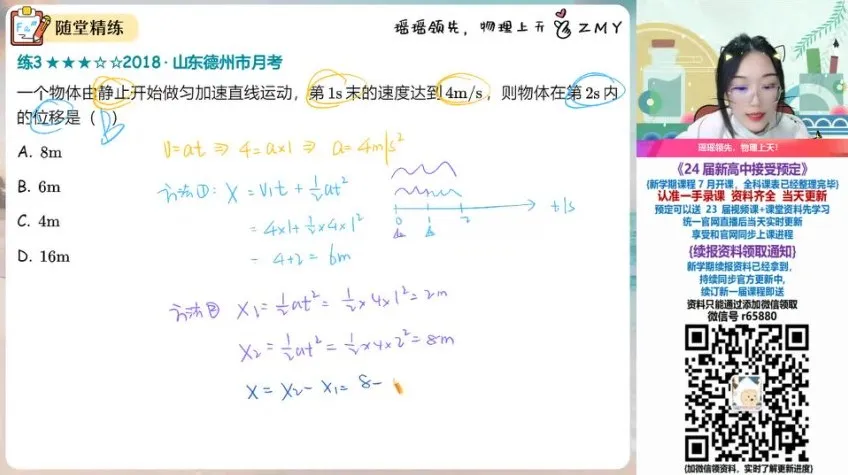 随堂精练
瑶瑶领先，物理上天 ZMY
练3 ★★★☆☆2018·山东德州市月考
一个物体由静止开始做匀加速直线运动，第1s末的速度达到4m/s，则物体在第2s内
的位移是（B）
A. 8m
B. 6m
C. 4m
D. 16m
v=at ⇒ 4=a×1 ⇒ a=4m/s²
方法①: x=v₁t+½at²
=4×1+½×4×1²
=4+2=6m
0 1 2 t/s
方法② x₁=½at²=½×4×1²=2m
x₂=½at²=½×4×2²=8m
x=x₂-x₁=8-
瑶瑶领先，物理上天！
《24届新高中接受预定》
(新学期课程7月开课，全科课表已经整理完毕)
认准一手录课 资料齐全 当天更新
预定可以送 23届视频课+课堂资料先学习
统一官网直播后当天实时更新
享受和官网同步上课进程
{续报资料领取通知}
新学期续报资料已经拿到，
持续同步官方更新中，
续订新一届课程即送
资料只能通过添加微信领取
微信号 r65880
(加微信领资料，实时了解更新进度)